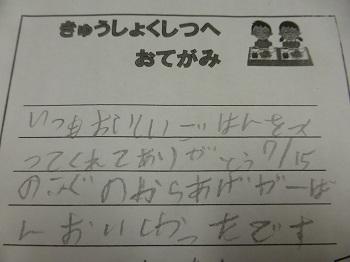 きゅうしょくしつへ
おてがみ
いつもおいしいごはんをつ
ってくれてありがとう7/15
のふぐのからあげがいちば
んおいしかったです